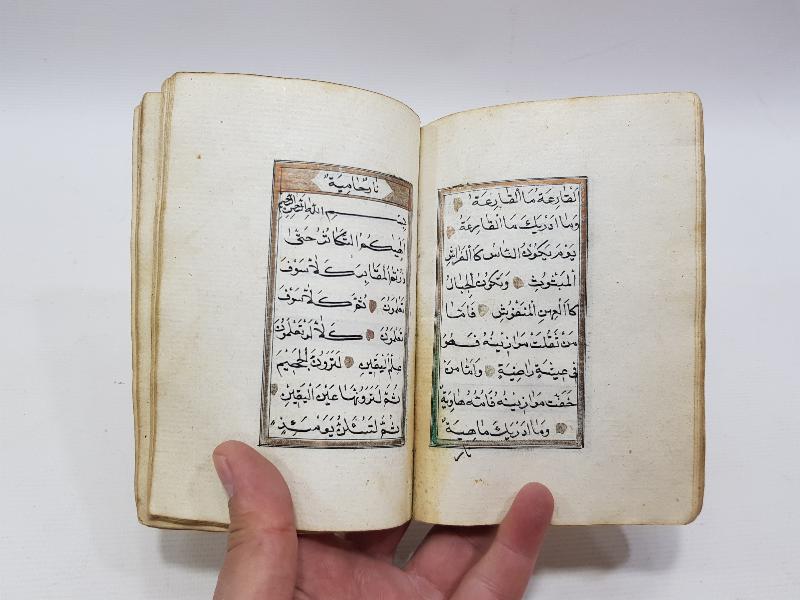 اَلْقَارِعَةُ مَا الْقَارِعَةُ
وَمَا اَدْرٰيكَ مَا الْقَارِعَةُ
يَوْمَ يَكُونُ النَّاسُ كَالْفَرَاشِ
الْمَبْثُوثِ وَتَكُونُ الْجِبَالُ
كَالْعِهْنِ الْمَنْفُوشِ فَاَمَّا
مَنْ ثَقُلَتْ مَوَازِينُهُ فَهُوَ
فِى عِيشَةٍ رَاضِيَةٍ وَاَمَّا مَنْ
خَفَّتْ مَوَازِينُهُ فَاُمُّهُ هَاوِيَةٌ
وَمَا اَدْرٰيكَ مَاهِيَةْ
نار
نَارٌ حَامِيَةٌ
بِسْمِ اللهِ الرَّحْمٰنِ الرَّحِيمِ
اَلْهٰيكُمُ التَّكَاثُرُ حَتّٰى
زُرْتُمُ الْمَقَابِرَ كَلَّا سَوْفَ
تَعْلَمُونَ ثُمَّ كَلَّا سَوْفَ
تَعْلَمُونَ كَلَّا لَوْ تَعْلَمُونَ
عِلْمَ الْيَقِينِ لَتَرَوُنَّ الْجَحِيمَ
ثُمَّ لَتَرَوُنَّهَا عَيْنَ الْيَقِينِ
ثُمَّ لَتُسْئَلُنَّ يَوْمَئِذٍ